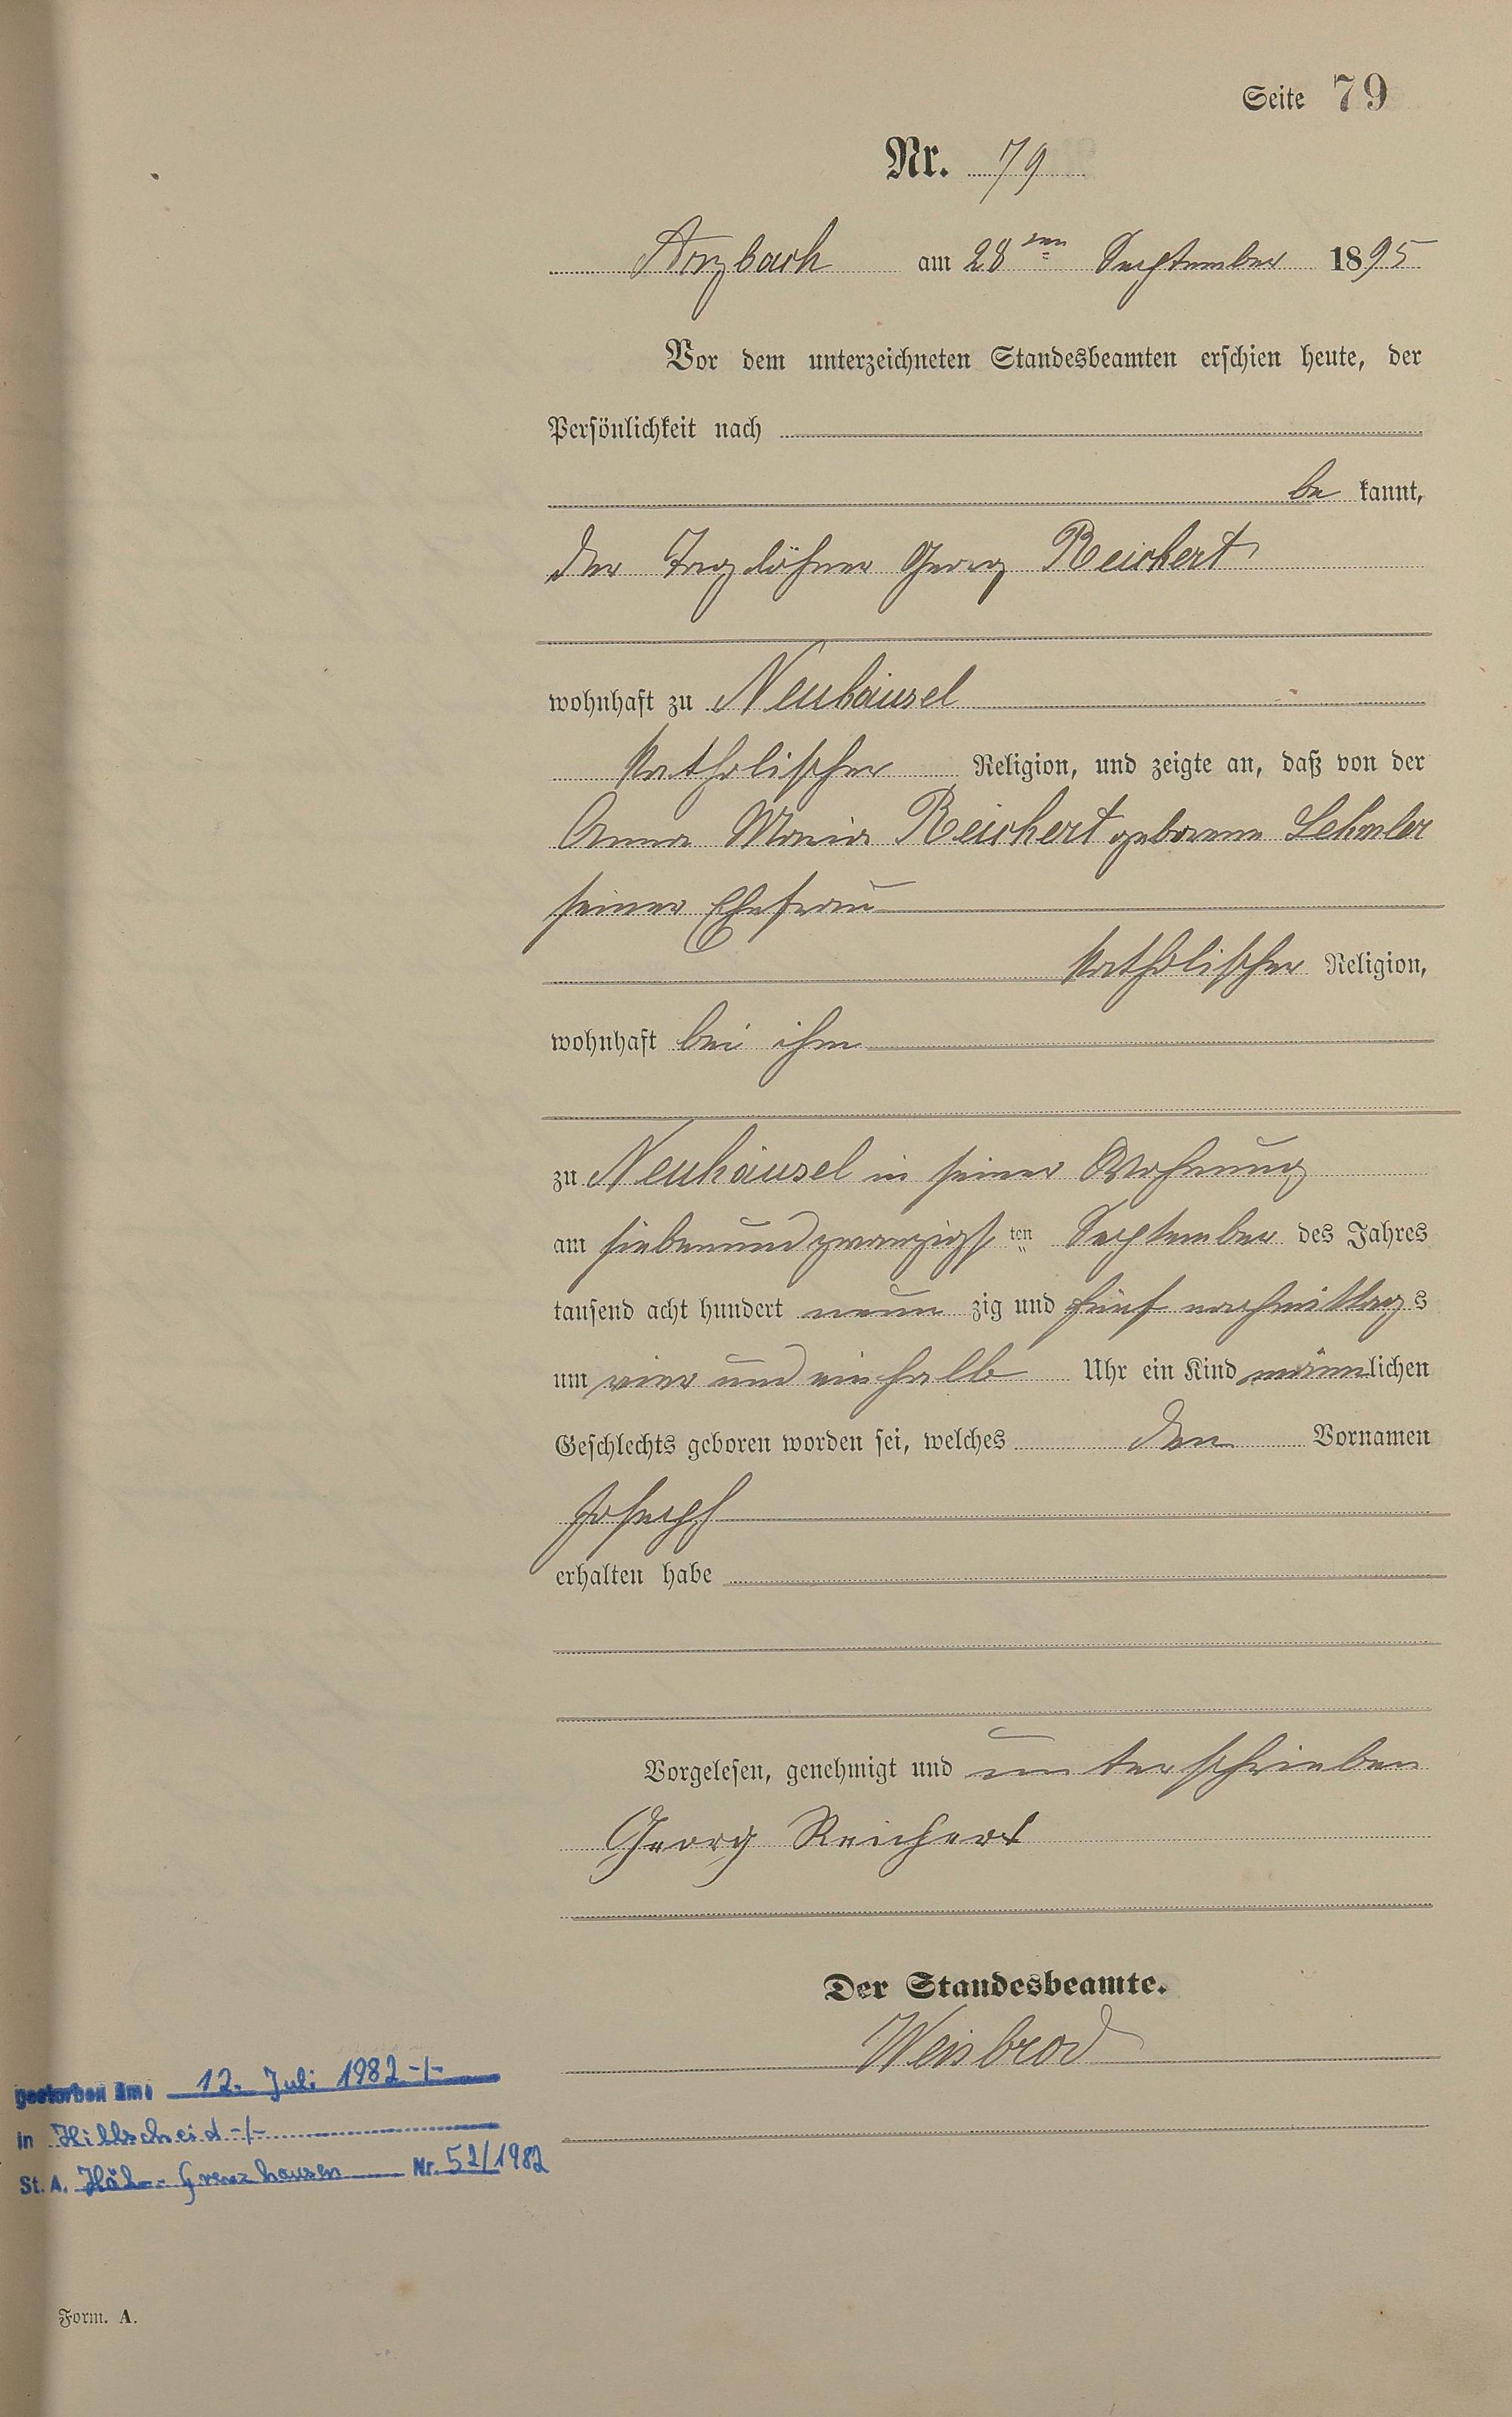 Seite 79
Nr. 79
Arzbach am 28ten September 1895
Vor dem unterzeichneten Standesbeamten erschien heute, der
Persönlichkeit nach
be kannt,
der Taglöhner Georg Reichert
wohnhaft zu Neuhäusel
katholischer Religion, und zeigte an, daß von der
Anna Maria Reichert geborene Lehmler
seiner Ehefrau
katholischer Religion,
wohnhaft bei ihm
zu Neuhäusel in seiner Wohnung
am siebenundzwanzigsten September des Jahres
tausend acht hundert neun zig und fünf nachmittags
um vier und einhalb Uhr ein Kind männlichen
Geschlechts geboren worden sei, welches den Vornamen
Joseph
erhalten habe
Vorgelesen, genehmigt und unterschrieben
Georg Reichert
Der Standesbeamte.
Weisbrod
gestorben am: 12. Juli 1982 -/-
in Hillscheid -/-
St. A. Höhr-Grenzhausen Nr. 52/1982
Form. A.